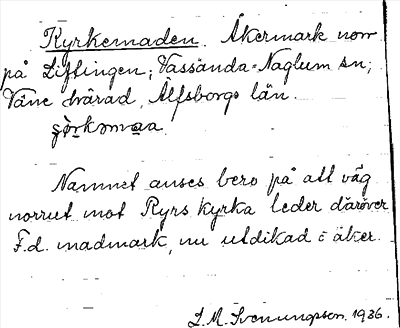 Kyrkemaden. Åkermark norr
på Liffingen; Vassända-Naglum sn;
Väne härad, Älfsborgs län.
Namnet anses bero på att väg
norrut mot Ryrs Kyrka leder däröver
F.d. madmark, nu utdikad i åker.
L. M. Svenungsson. 1936.